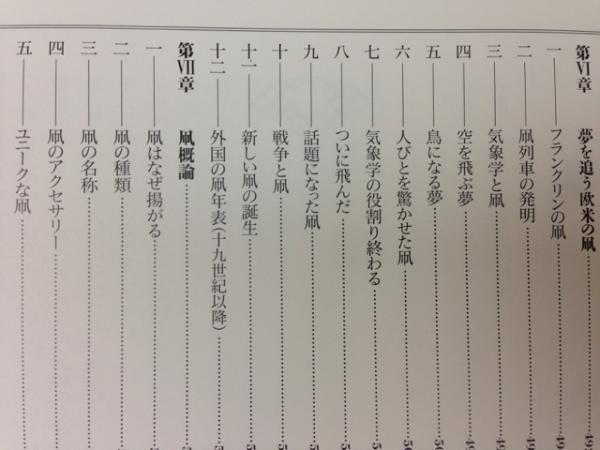 第Ⅵ章 夢を追う欧米の凧
一 フランクリンの凧
二 凧列車の発明
三 気象学と凧
四 空を飛ぶ夢
五 鳥になる夢
六 人びとを驚かせた凧
七 気象学の役割り終わる
八 ついに飛んだ
九 話題になった凧
十 戦争と凧
十一 新しい凧の誕生
十二 外国の凧年表(十九世紀以降)
第Ⅶ章 凧概論
一 凧はなぜ揚がる
二 凧の種類
三 凧の名称
四 凧のアクセサリー
五 ユニークな凧